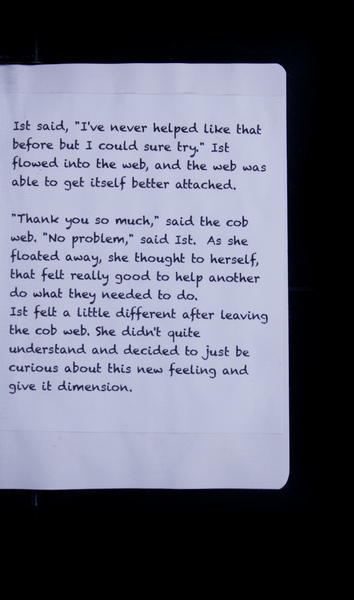 Ist said, "I've never helped like that
before but I could sure try." Ist
flowed into the web, and the web was
able to get itself better attached.
"Thank you so much," said the cob
web. "No problem," said Ist. As she
floated away, she thought to herself,
that felt really good to help another
do what they needed to do.
Ist felt a little different after leaving
the cob web. She didn't quite
understand and decided to just be
curious about this new feeling and
give it dimension.